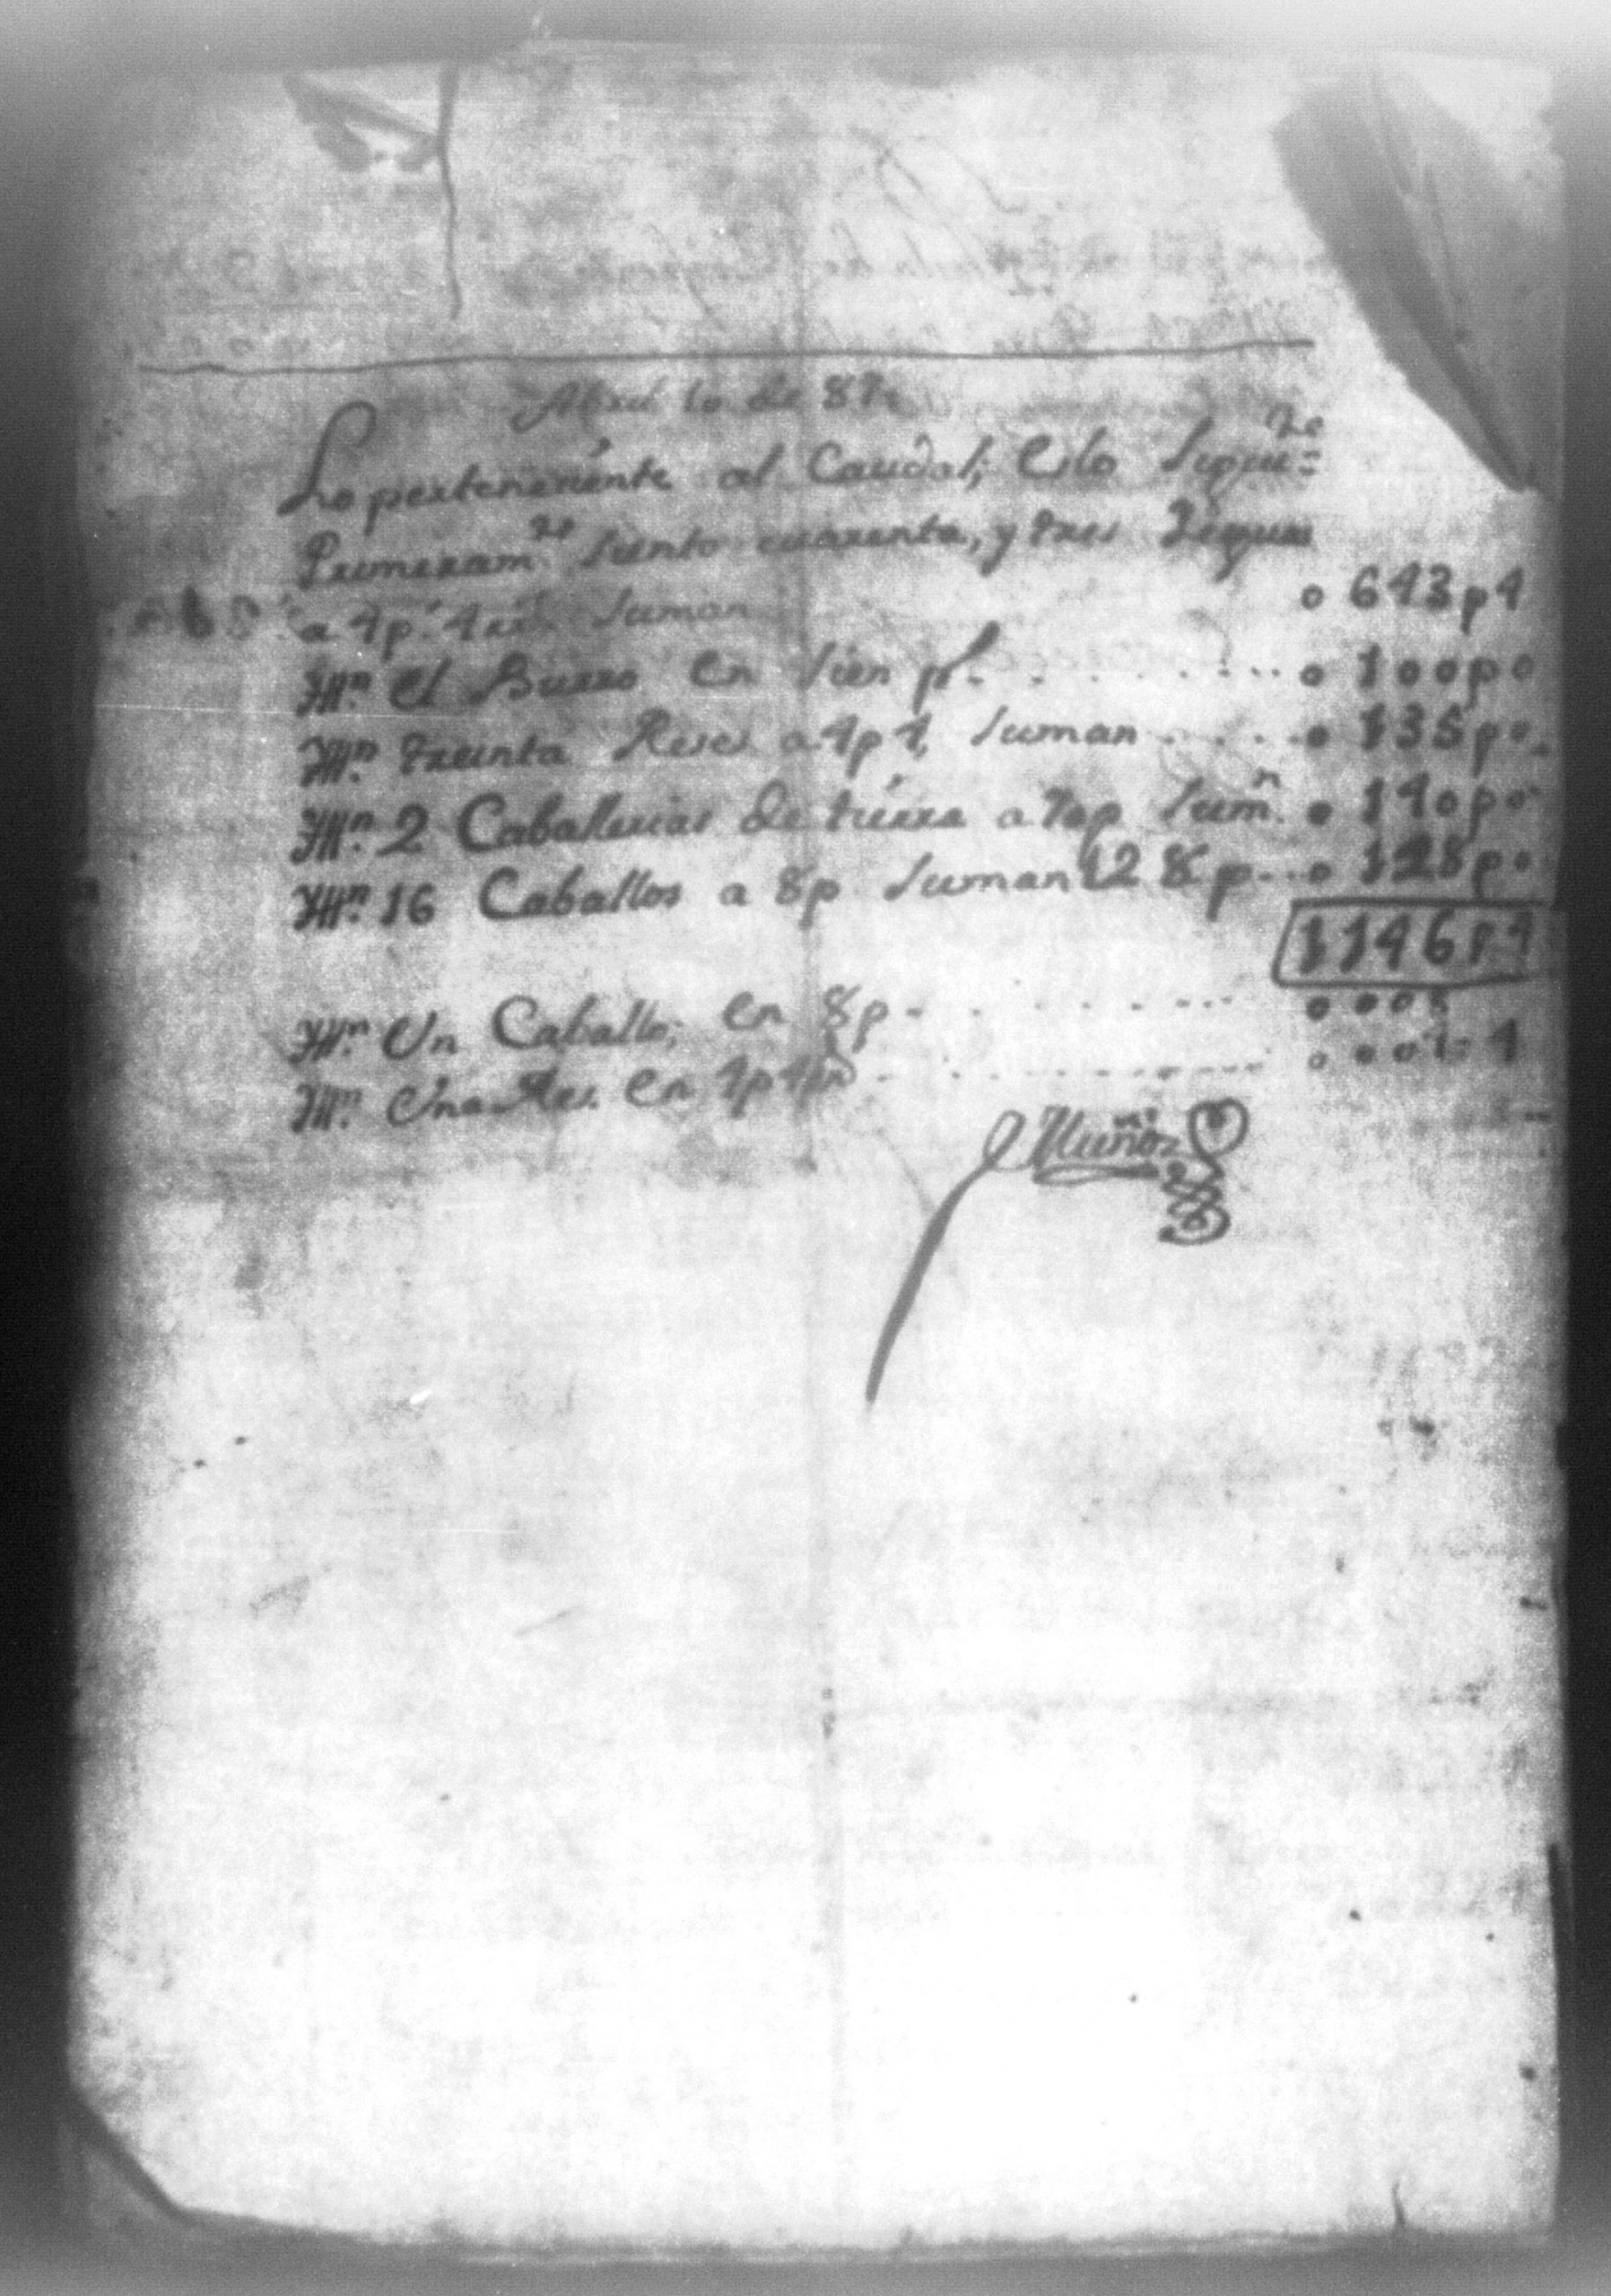 Abril 10 de 87
Lo perteneciente al Caudal; Es lo Siguie.te
Primeram.te Siento cuarenta, y tres Yeguas
a 4p.s 4 rr.s Suman 0 643p4
Ytt.n el Burro en Sien p.s 0 100p0
Ytt.n treinta Reses a 4p4, Suman 0 135p0
Ytt.n 2 Caballerias de tierra a 70p Sum.n 0 140p0
Ytt.n 16 Caballos a 8p Suman 128p 0 128p0
1146p4
Ytt.n Un Caballo; en 8p 0008
Ytt.n Una Res. en 4p4rr 0004=4
Muños